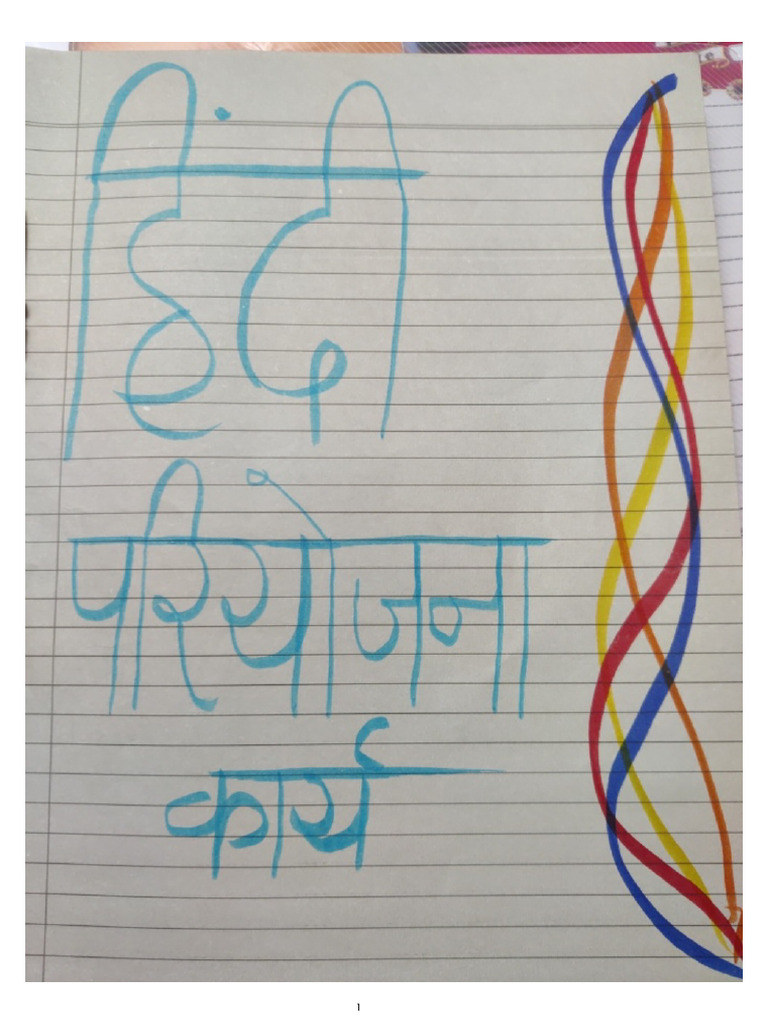 हिंदी
परियोजना
कार्य
1